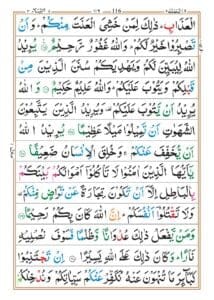 116
الْعَذَابِ ؕ ذٰلِكَ لِمَنْ خَشِیَ الْعَنَتَ مِنْكُمْ ؕ وَ اَنْ
تَصْبِرُوْا خَیْرٌ لَّكُمْ ؕ وَ اللّٰهُ غَفُوْرٌ رَّحِیْمٌ ۠ یُرِیْدُ
اللّٰهُ لِیُبَیِّنَ لَكُمْ وَ یَهْدِیَكُمْ سُنَنَ الَّذِیْنَ مِنْ
قَبْلِكُمْ وَ یَتُوْبَ عَلَیْكُمْ ؕ وَ اللّٰهُ عَلِیْمٌ حَكِیْمٌ وَ اللّٰهُ
یُرِیْدُ اَنْ یَّتُوْبَ عَلَیْكُمْ ۫ وَ یُرِیْدُ الَّذِیْنَ یَتَّبِعُوْنَ
الشَّهَوٰتِ اَنْ تَمِیْلُوْا مَیْلًا عَظِیْمًا یُرِیْدُ اللّٰهُ
اَنْ یُّخَفِّفَ عَنْكُمْ ۚ وَ خُلِقَ الْاِنْسَانُ ضَعِیْفًا
یٰۤاَیُّهَا الَّذِیْنَ اٰمَنُوْا لَا تَاْكُلُوْۤا اَمْوَالَكُمْ بَیْنَكُمْ
بِالْبَاطِلِ اِلَّاۤ اَنْ تَكُوْنَ تِجَارَةً عَنْ تَرَاضٍ مِّنْكُمْ ۫
وَ لَا تَقْتُلُوْۤا اَنْفُسَكُمْ ؕ اِنَّ اللّٰهَ كَانَ بِكُمْ رَحِیْمًا
وَ مَنْ یَّفْعَلْ ذٰلِكَ عُدْوَانًا وَّ ظُلْمًا فَسَوْفَ نُصْلِیْهِ
نَارًا ؕ وَ كَانَ ذٰلِكَ عَلَی اللّٰهِ یَسِیْرًا اِنْ تَجْتَنِبُوْا
كَبَآىِٕرَ مَا تُنْهَوْنَ عَنْهُ نُكَفِّرْ عَنْكُمْ سَیِّاٰتِكُمْ وَ نُدْخِلْكُمْ